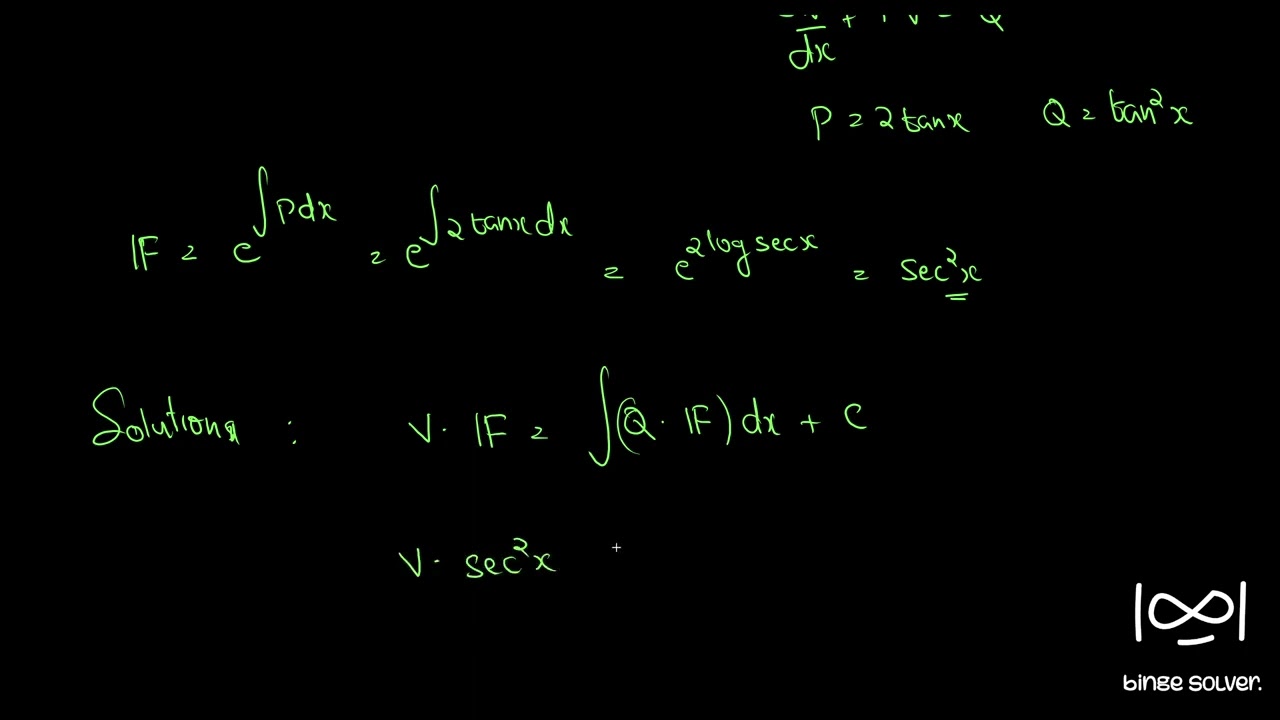 dx
P = 2tanx Q = tan²x
IF = e^∫Pdx = e^∫2tanxdx = e^2logsecx = sec²x
Solution : V · IF = ∫(Q · IF) dx + C
V · sec²x
binge solver.